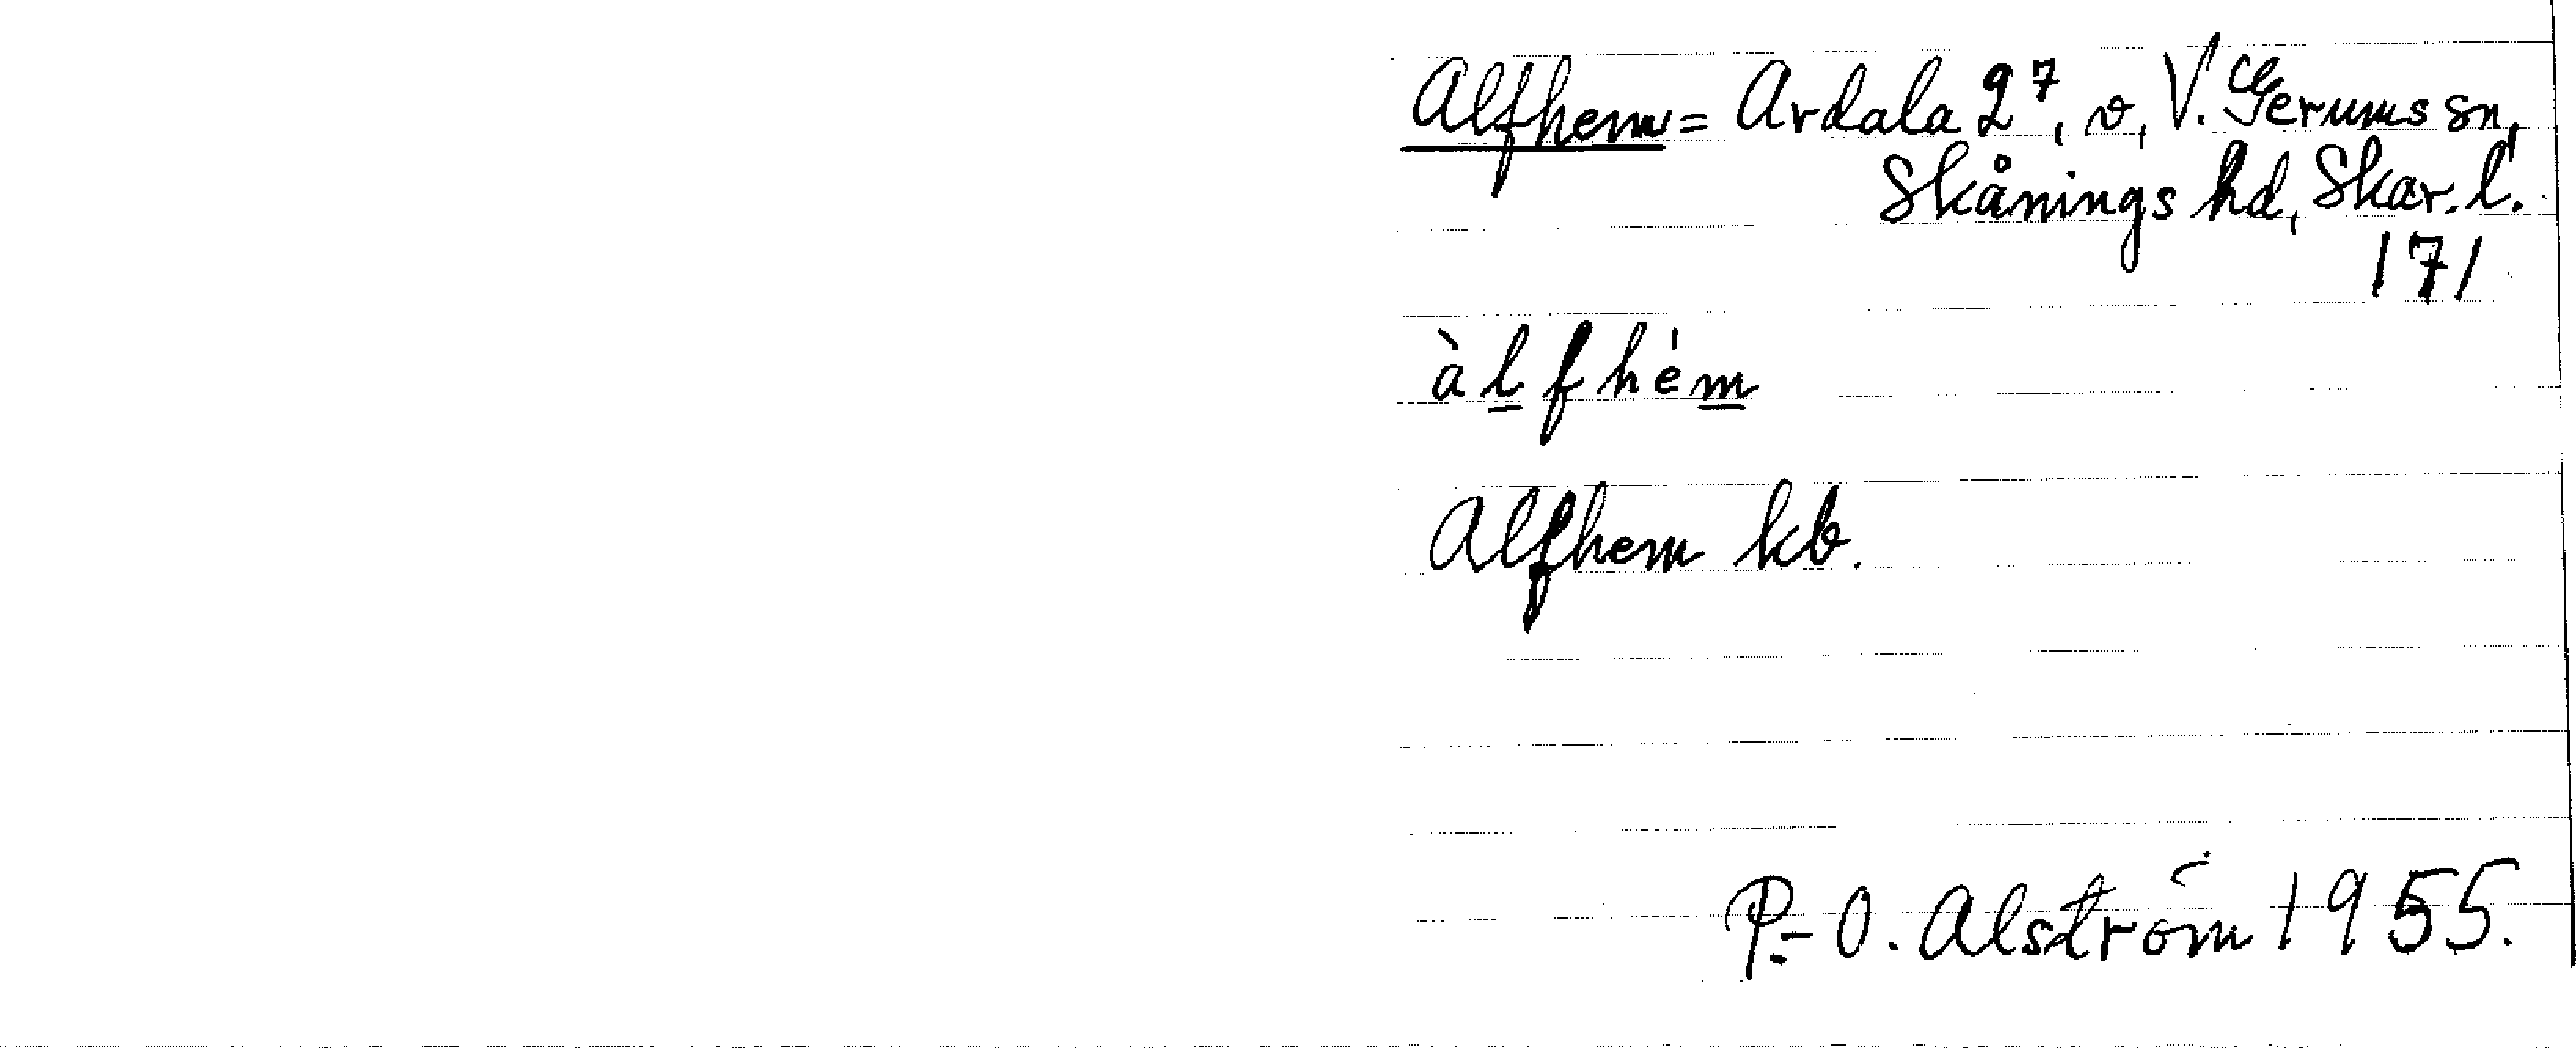 Alfhem = Ardala 2⁷, v, V. Gerums sn,
Skånings hd, Skar. l.
171
àlfhém
Alfhem kb.
P.-O. Alström 1955.